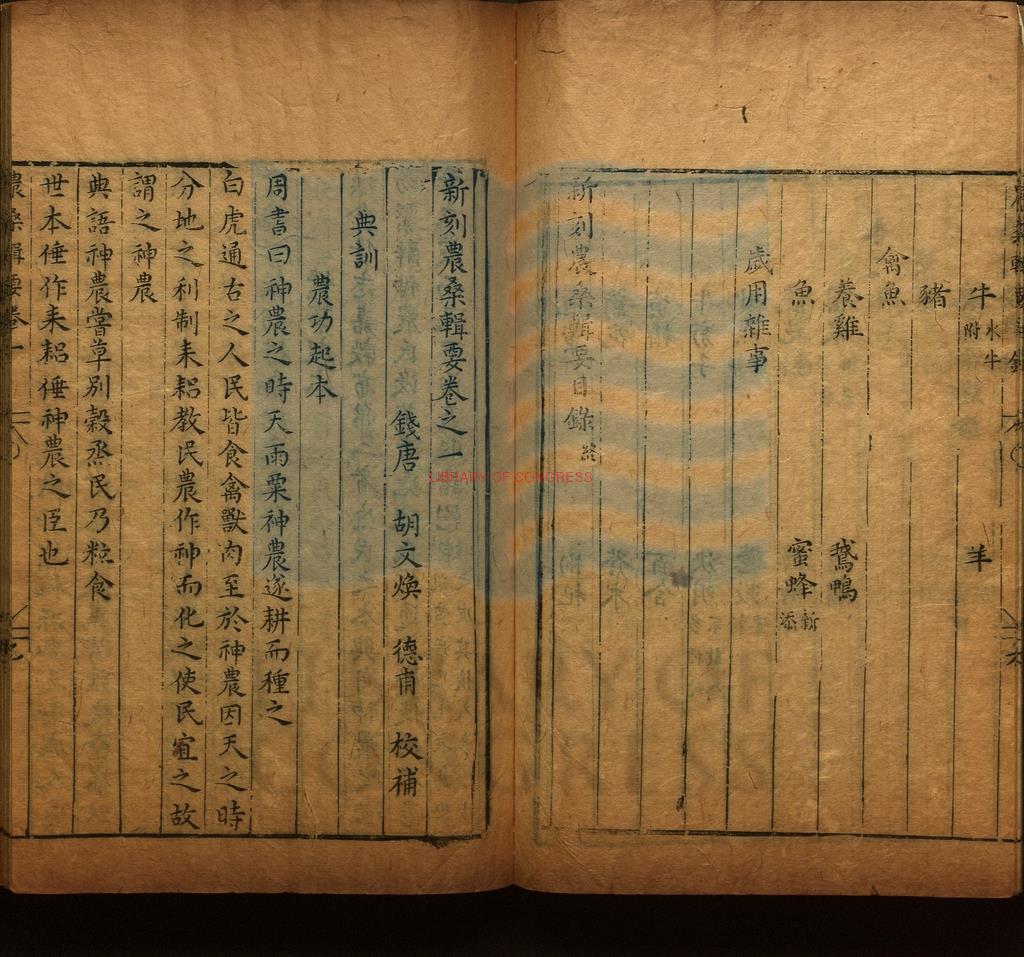 牛 水牛附 羊
豬
禽魚
養雞 鵝鴨
魚 蜜蜂 新添
歲用雜事
新刻農桑輯要目錄 終
新刻農桑輯要卷之一
錢唐 胡文煥 德甫 校補
典訓
農功起本
周書曰神農之時天雨粟神農遂耕而種之
白虎通古之人民皆食禽獸肉至於神農因天之時
分地之利制耒耜教民農作神而化之使民宜之故
謂之神農
典語神農嘗草別穀烝民乃粒食
世本倕作耒耜倕神農之臣也
農桑輯要卷一
LIBRARY OF CONGRESS